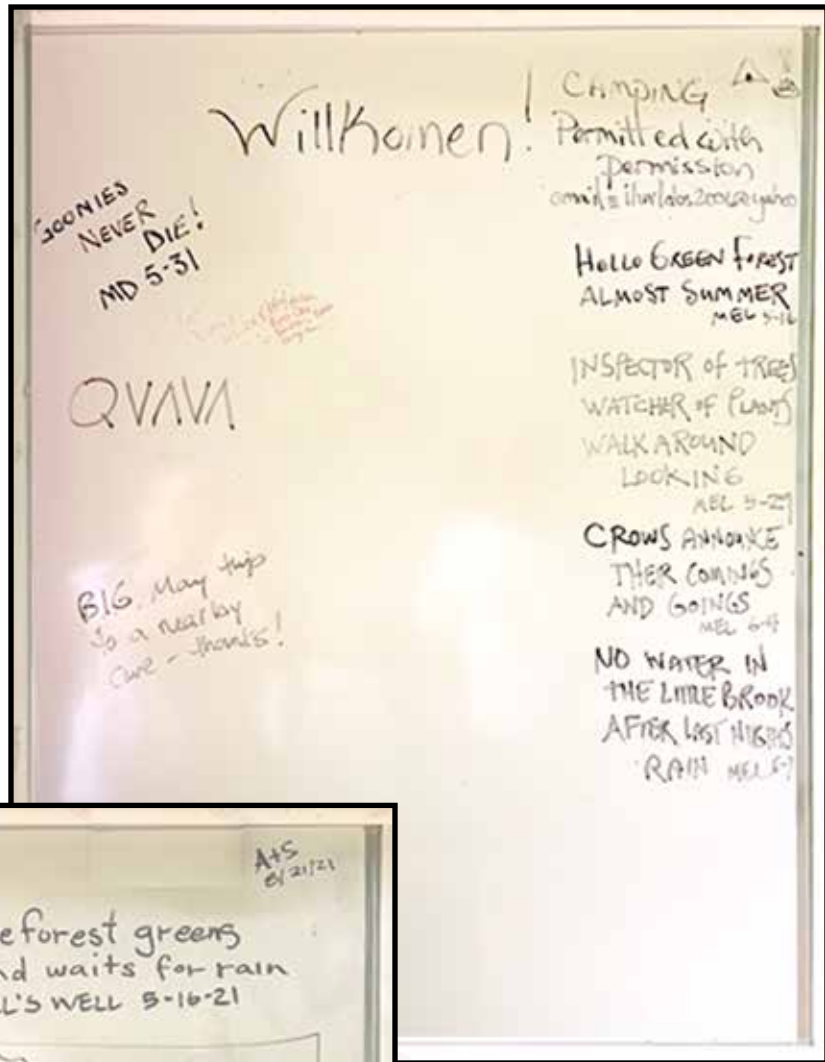 Willkomen!
CAMPING
Permitted with
permission
GOONIES
NEVER
DIE!
MD 5-31
QVΛVΛ
BIG May trip
to a nearby
- thanks!
HELLO GREEN FOREST
ALMOST SUMMER
MEL 5-16
INSPECTOR OF TREES
WATCHER OF PLANTS
WALK AROUND
LOOKING
MEL 5-29
CROWS ANNOUNCE
THER COMINGS
AND GOINGS
MEL
NO WATER IN
THE LITTLE BROOK
AFTER LAST NIGHTS
RAIN MEL
A+S
8/21/21
forest greens
waits for rain
WELL 5-16-21